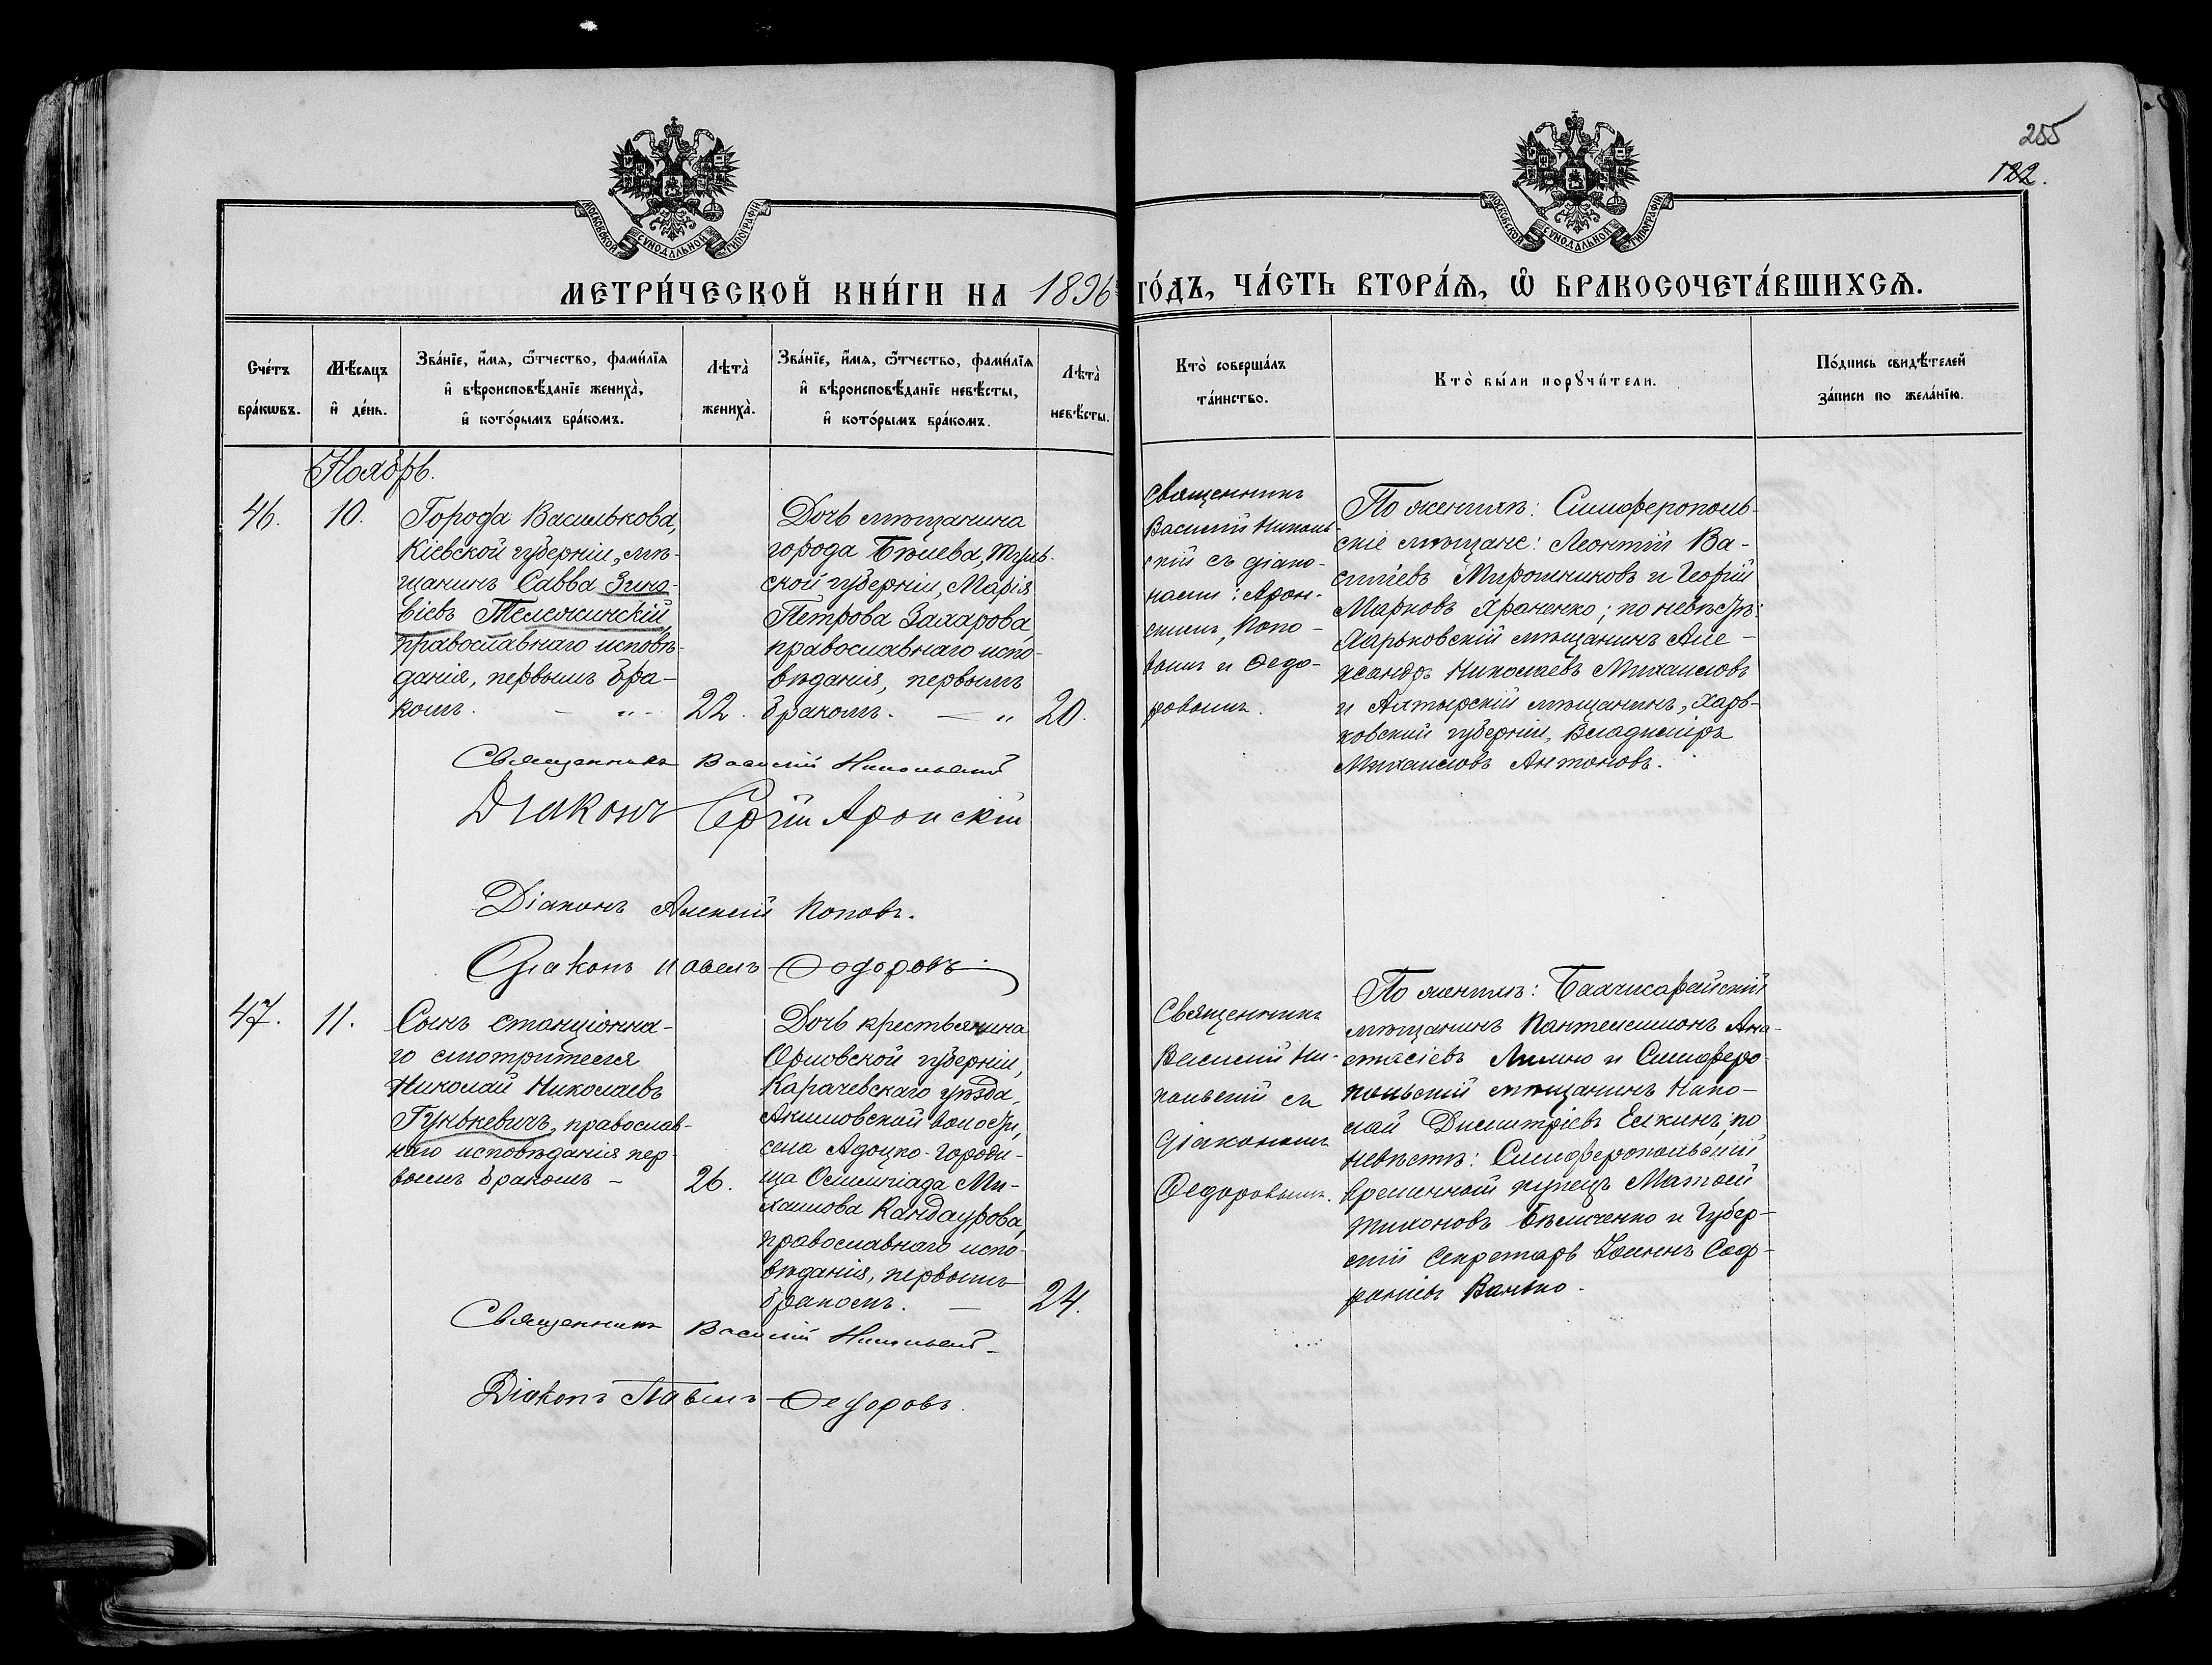 255
122.
МОСКОВСКОЙ СѴНОДАЛЬНОЙ ТИПОГРАФІИ
МОСКОВСКОЙ СѴНОДАЛЬНОЙ ТИПОГРАФІИ
МЕТРИ́ЧЕСКОЙ КНИ́ГИ НА 1896
ГО́ДЪ, ЧА́СТЬ ВТОРА́Ѧ, Ѽ БРАКОСОЧЕТА́ВШИХСѦ.
Сче́тъ
бра́кѡвъ.
Мѣ́сяцъ
и҆ де́нь.
Зва́нїе, и҆́мя, ѻ҆́тчество, фами́лїя
и҆ вѣроисповѣ́данїе жениха̀,
и҆ кото́рымъ бра́комъ.
Лѣта̀
жениха̀.
Зва́нїе, и҆́мя, ѻ҆́тчество, фами́лїя
и҆ вѣроисповѣ́данїе невѣ́сты,
и҆ кото́рымъ бра́комъ.
Лѣта̀
невѣ́сты.
Кто̀ соверша́лъ
та́инство.
Кто̀ бы́ли порꙋчи́тели.
По́дпись свидѣ́телей
за́писи по жела́нїю.
Ноябрь.
46.
10.
Города Василькова,
Кіевской губерніи, мѣ-
щанинъ Савва Зино-
віевъ Тележинскій,
православнаго исповѣ-
данія, первымъ бра-
комъ. — „ -
22.
Дочь мѣщанина
города Бѣлева, Туль-
ской губерніи, Марія
Петрова Захарова,
православнаго испо-
вѣданія, первымъ
бракомъ. — „
20.
Священникъ
Василій Николь-
скій съ діако-
нами: Арон-
скимъ, Попо-
вымъ и Ѳедо-
ровымъ.
По женихѣ: Симферополь-
скіе мѣщане: Леонтій Ва-
сильевъ Мирошниковъ и Георгій
Марковъ Яраченко; по невѣстѣ:
Харьковскій мѣщанинъ Але-
ксандръ Николаевъ Михаиловъ
и Ахтырскій мѣщанинъ, Харь-
ковской губерніи, Владиміръ
Михаиловъ Антоновъ.
Священникъ Василій Никольскій
Діаконъ Сергій Аронскій
Діаконъ Алексій Поповъ.
Діаконъ Павелъ Ѳедоровъ
47.
11.
Сынъ станціонна-
го смотрителя
Николай Николаевъ
Гунькевичъ, православ-
наго исповѣданія пер-
вымъ бракомъ –
26.
Дочь крестьянина
Орловской губерніи,
Карачевскаго уѣзда,
Акимовской волости,
села Адоцко-Городи-
ща Олимпіада Ми-
хаилова Кандаурова,
православнаго испо-
вѣданія, первымъ
бракомъ. —
24.
Священникъ
Василій Ни-
кольскій съ
діакономъ
Ѳедоровымъ.
По женихѣ: Бахчисарайскій
мѣщанинъ Пантелеимонъ Ана-
стасіевъ и Симферо-
польскій мѣщанинъ Нико-
лай Димитріевъ Елкинъ; по
невѣстѣ: Симферопольскій
временной купецъ Матѳей
Тихоновъ Бѣличенко и Губер-
скій Секретарь Іоаннъ Соф-
роніевъ
Священникъ Василій Никольскій
Діаконъ Павелъ Ѳедоровъ.